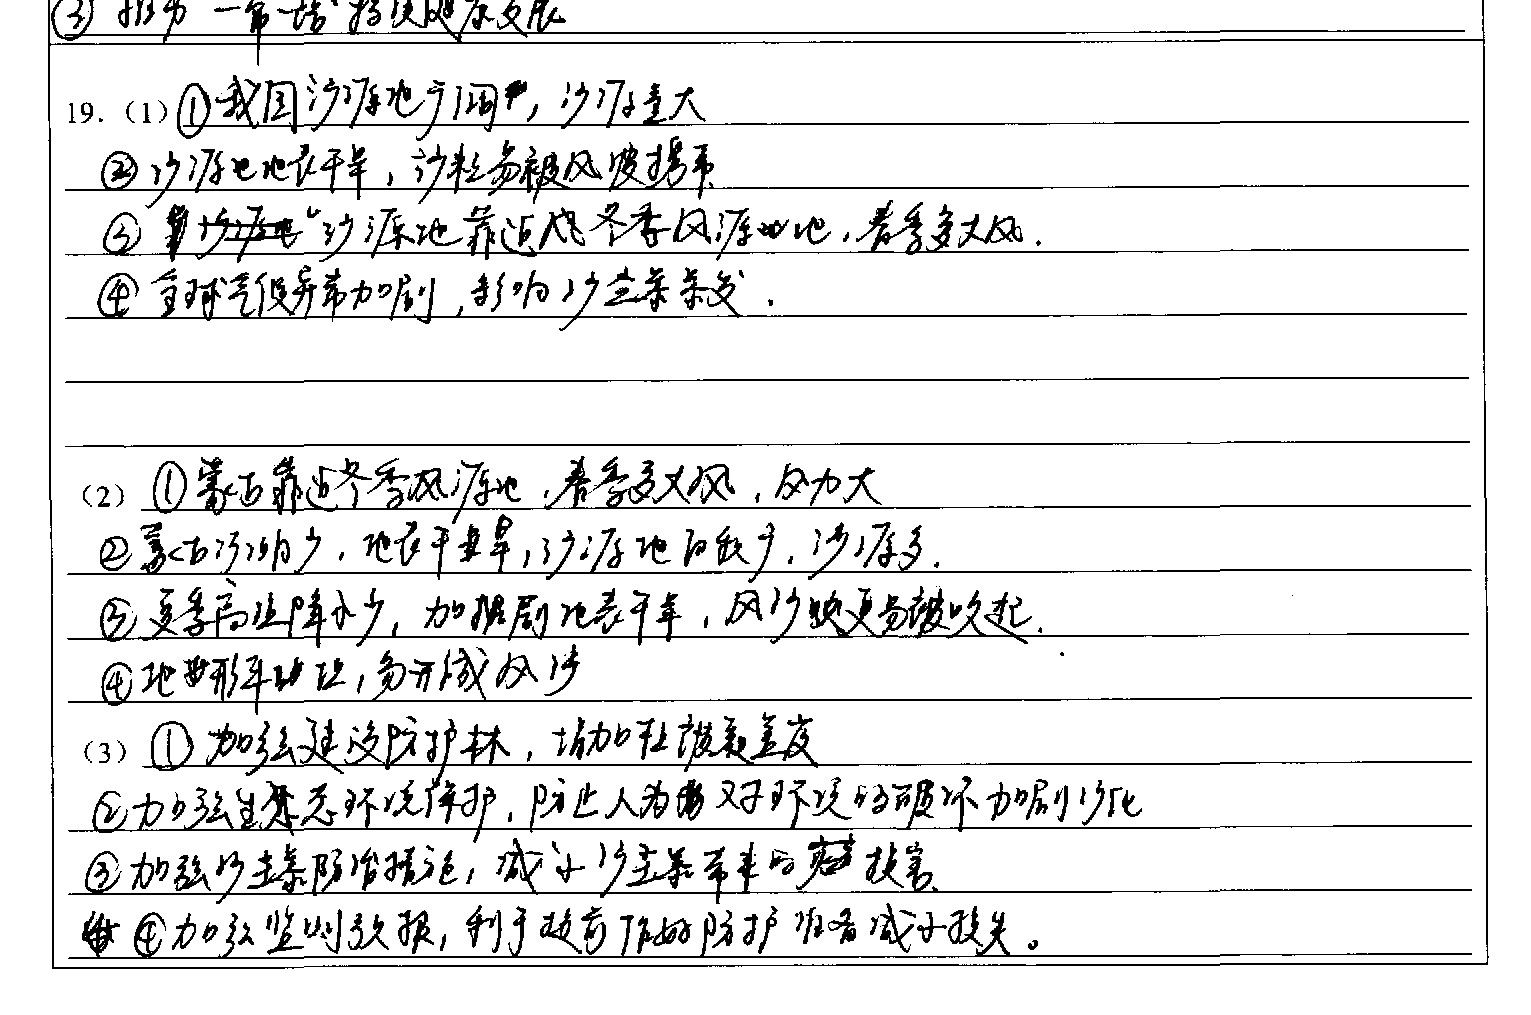 ③推动"一带一路"持续健康发展
19.（1）①我国沙源地广阔，沙源量大
②沙源地地表干旱，沙粒易被风吹携带
③沙源地靠近冬季风源地，春季多大风．
④全球气候异常加剧，影响沙尘暴暴发．
（2）①蒙古靠近冬季风源地，春季多大风，风力大
②蒙古河湖少，地表干旱，沙源地，沙源多．
③夏季高温降水少，加剧地表干旱，风沙更易被吹起．
④地形平坦，易形成风沙
（3）①加强建设防护林，增加植被覆盖度
②加强生态环境保护，防止人为对环境的破坏加剧沙化
③加强沙尘暴防治措施，减小沙尘暴带来的损害．
④加强监测预报，利于提前作好防护准备减小损失。